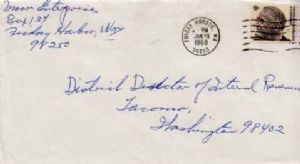 Moor Enterprises
Box 137
Friday Harbor, Wa
98250
FRIDAY HARBOR, WA
PM
1968
98250
6¢
District Director of Internal Revenue
Tacoma,
Washington 98402